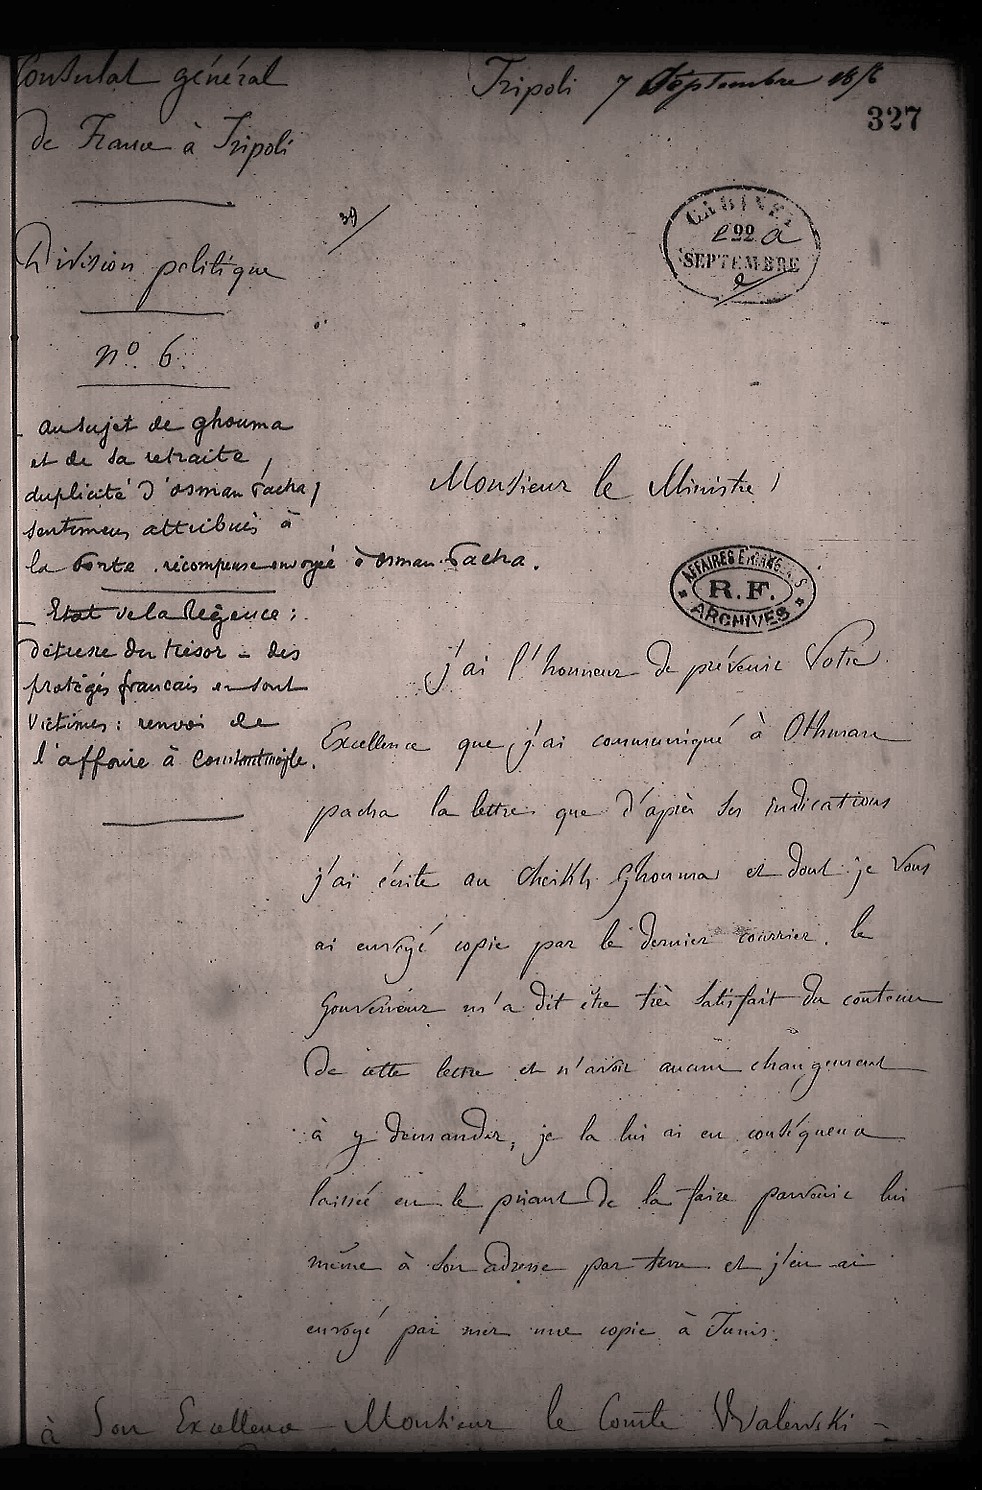 Consulat général
de France à Tripoli
Division politique
n° 6.
au sujet de ghouma
et de sa retraite,
duplicité d'osman Pacha,
sentimens attribués à
la Porte. récompense envoyée à osman Pacha.
Etat de la Régence:
détresse du trésor - des
protégés français en sont
victimes: renvoi de
l'affaire à Constantinople.
Tripoli 7 Septembre 1856
327
39
CABINET
22
SEPTEMBRE
Monsieur le Ministre,
AFFAIRES ETRANGERES
R.F.
ARCHIVES
j'ai l'honneur de prévenir Votre
Excellence que j'ai communiqué à Othman
pacha la lettre que d'après ses indications
j'ai écrite au Cheikh Ghouma et dont je vous
ai envoyé copie par le dernier courrier. le
Gouverneur m'a dit être très satisfait du contenu
de cette lettre et n'avoir aucun changement
à y demander; je la lui ai en conséquence
laissée en le priant de la faire parvenir lui
même à son adresse par terre et j'en ai
envoyé par mer une copie à Tunis.
à Son Excellence Monsieur le Comte Walewski